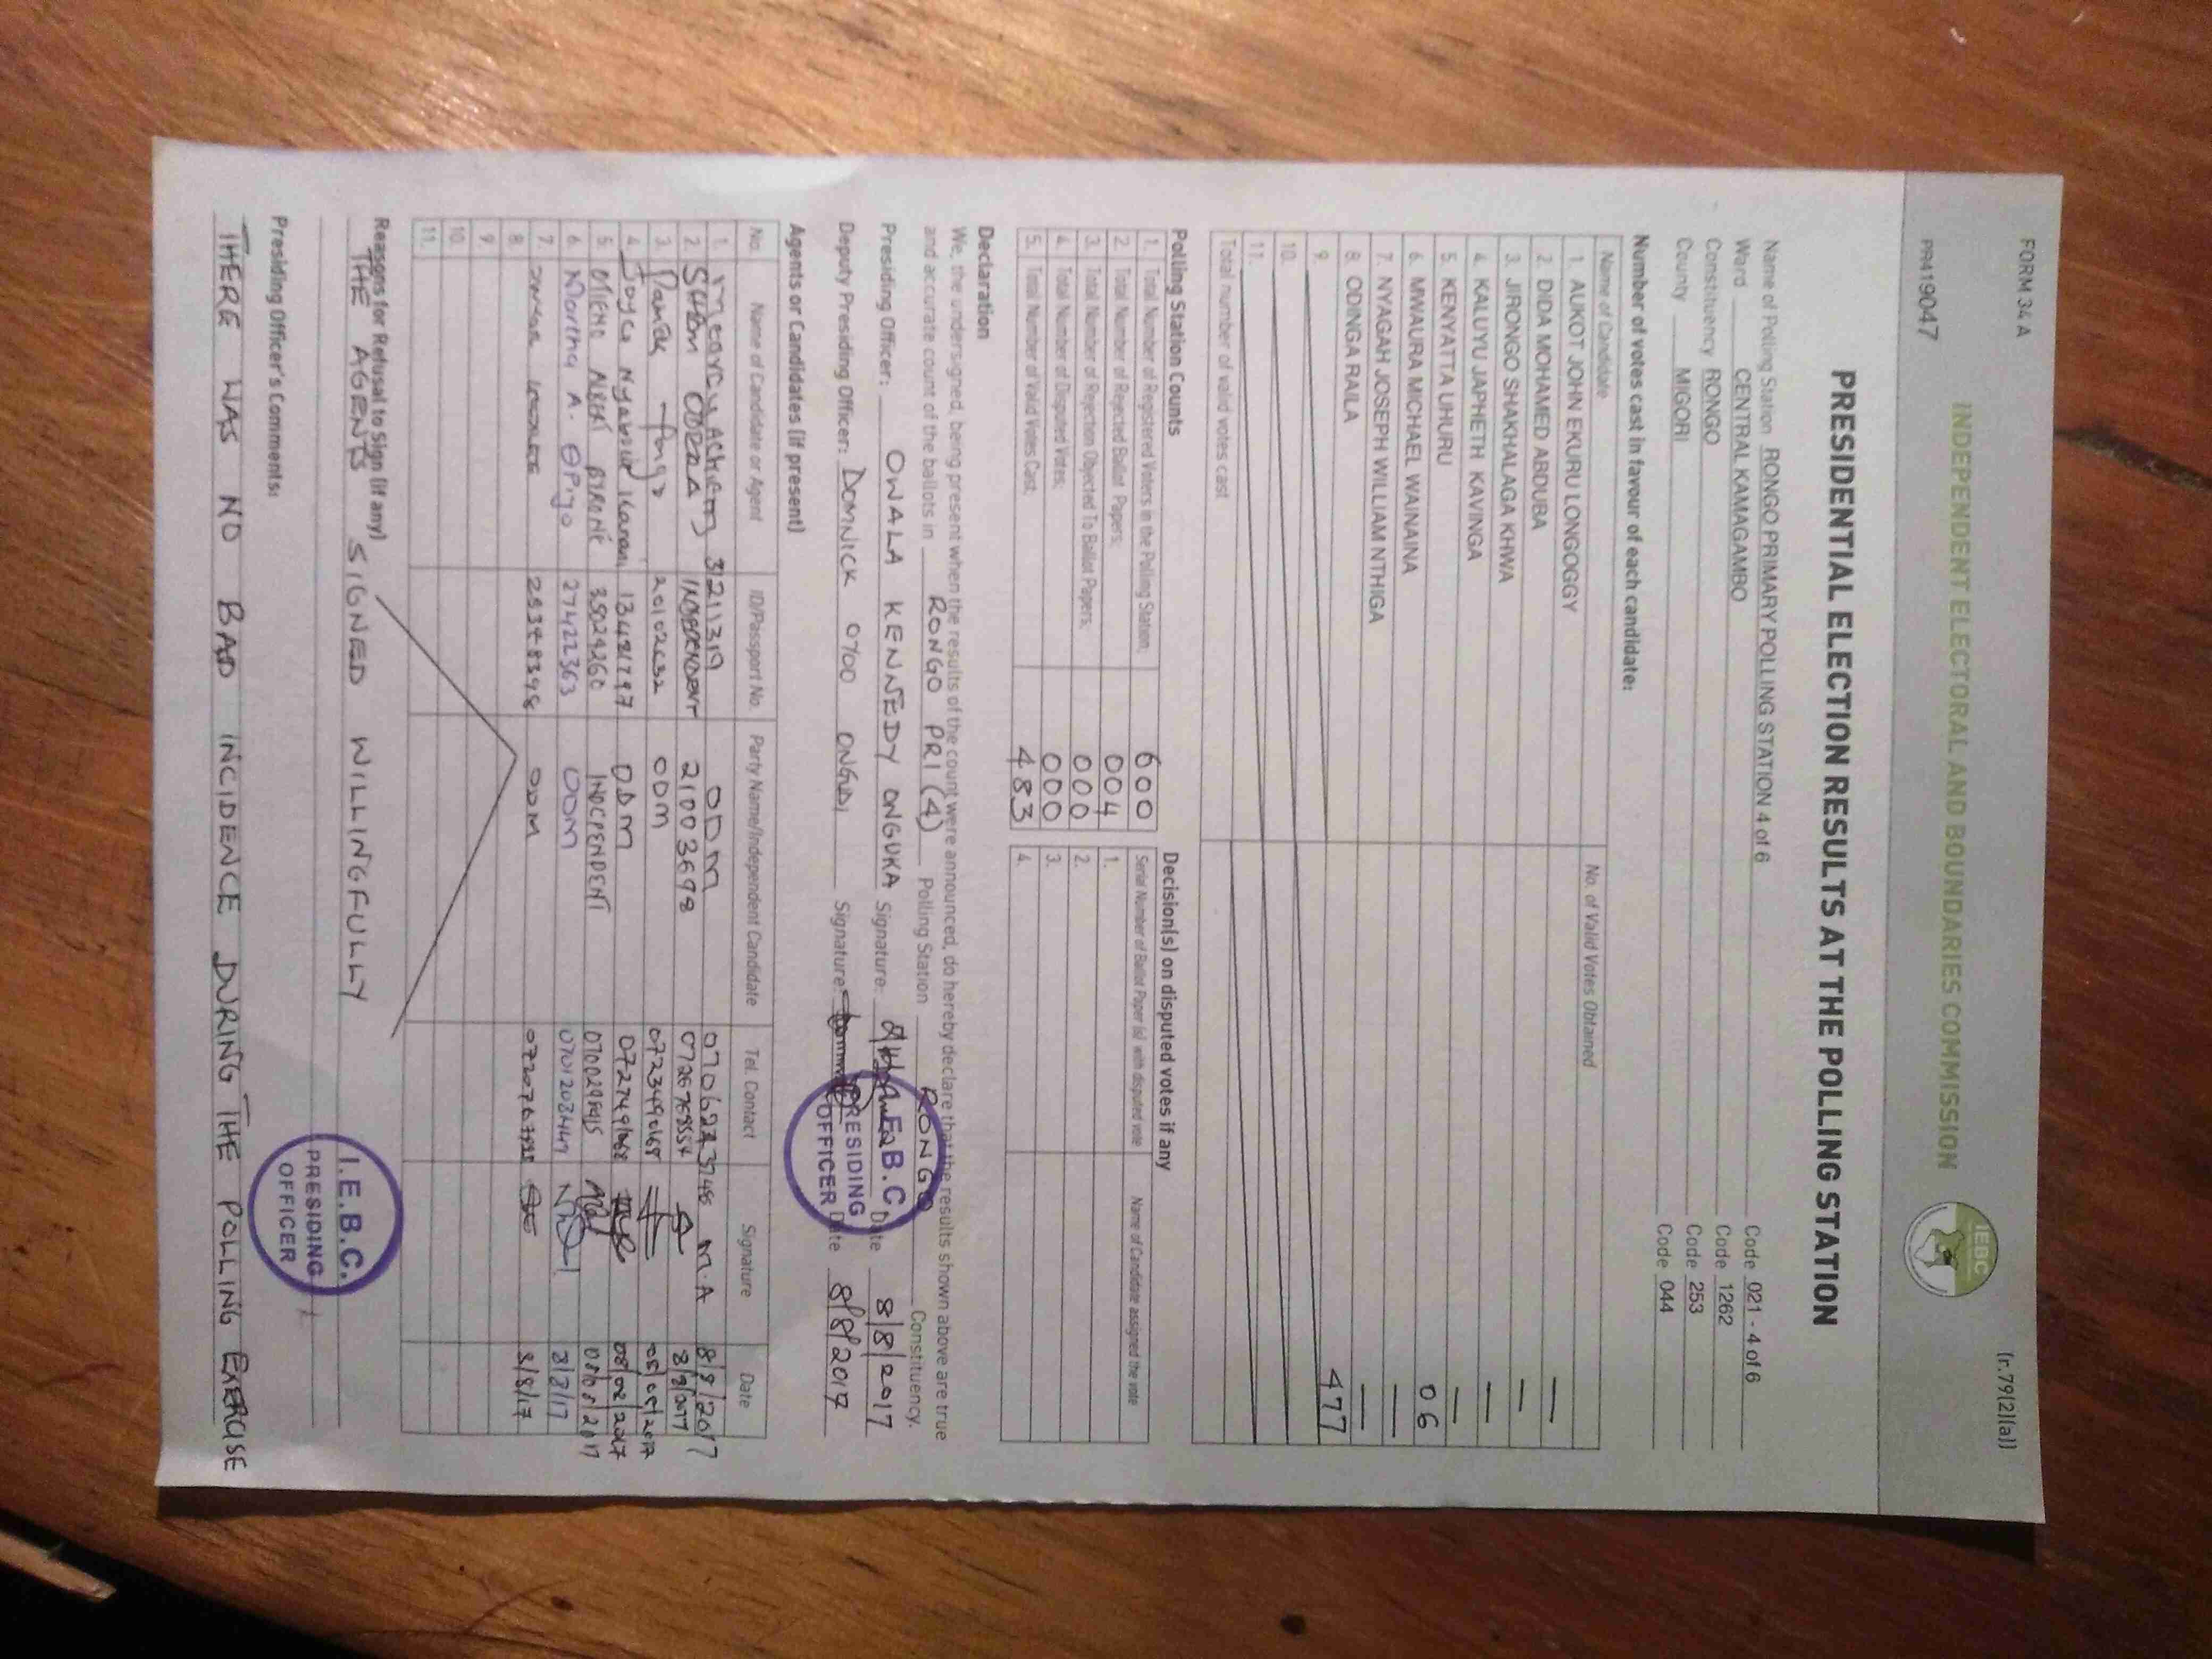 FORM 34 A
(r.79(2)(a))
INDEPENDENT ELECTORAL AND BOUNDARIES COMMISSION
IEBC
PR419047
PRESIDENTIAL ELECTION RESULTS AT THE POLLING STATION
Name of Polling Station RONGO PRIMARY POLLING STATION 4 of 6 Code 021 - 4 of 6
Ward CENTRAL KAMAGAMBO Code 1262
Constituency RONGO Code 253
County MIGORI Code 044
Number of votes cast in favour of each candidate:
Name of Candidate No. of Valid Votes Obtained
1. AUKOT JOHN EKURU LONGOGGY —
2. DIDA MOHAMED ABDUBA —
3. JIRONGO SHAKHALAGA KHWA —
4. KALUYU JAPHETH KAVINGA —
5. KENYATTA UHURU 06
6. MWAURA MICHAEL WAINAINA —
7. NYAGAH JOSEPH WILLIAM NTHIGA —
8. ODINGA RAILA 477
9.
10.
11.
Total number of valid votes cast
Polling Station Counts
1. Total Number of Registered Voters in the Polling Station; 600
2. Total Number of Rejected Ballot Papers; 004
3. Total Number of Rejection Objected To Ballot Papers; 000
4. Total Number of Disputed Votes; 000
5. Total Number of Valid Votes Cast; 483
Decision(s) on disputed votes if any
Serial Number of Ballot Paper (s) with disputed vote Name of Candidate assigned the vote
1.
2.
3.
4.
Declaration
We, the undersigned, being present when the results of the count were announced, do hereby declare that the results shown above are true
and accurate count of the ballots in RONGO PRI (4) Polling Station RONGO Constituency.
Presiding Officer: OWALA KENNEDY ONGUKA Signature: Date 8/8/2017
Deputy Presiding Officer: DOMNICK 0700 ONGUDI Signature: Date 8/8/2017
I.E.B.C.
PRESIDING
OFFICER
Agents or Candidates (if present)
No. Name of Candidate or Agent ID/Passport No. Party Name/Independent Candidate Tel. Contact Signature Date
1. Achieng 3211319 ODM M.A 8/8/2017
2. INDEPENDENT 21003698 0726768554 8/8/2017
3. 20102632 ODM 0723490168 08/08/2017
4. Joyce 13481797 ODM 08/08/2017
5. OTIENO 35029260 INDEPENDENT 08/08/2017
6. Martha A. Opiyo 27422363 ODM 0701203447 8/8/17
7. ODM 8/8/17
8.
9.
10.
11.
Reasons for Refusal to Sign (if any)
THE AGENTS SIGNED WILLINGFULLY
Presiding Officer's Comments:
I.E.B.C.
PRESIDING
OFFICER
THERE WAS NO BAD INCIDENCE DURING THE POLLING EXERCISE